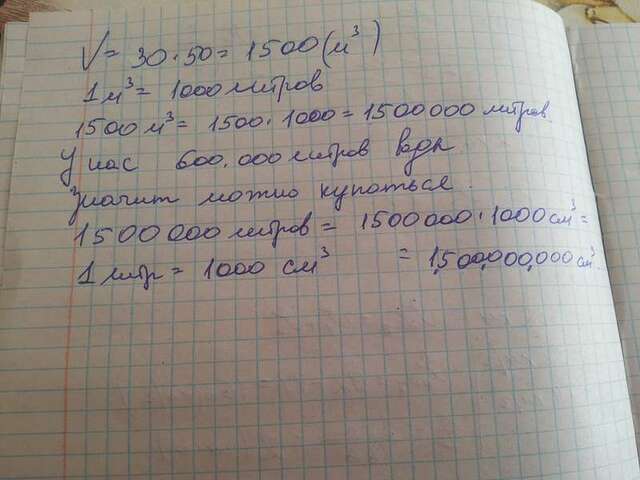 V = 30 · 50 = 1500 (м³)
1 м³ = 1000 литров
1500 м³ = 1500 · 1000 = 1500 000 литров
У нас 600.000 литров воды
значит можно купаться.
1500 000 литров = 1500 000 · 1000 см³ =
1 литр = 1000 см³ = 1,500,000,000 см³